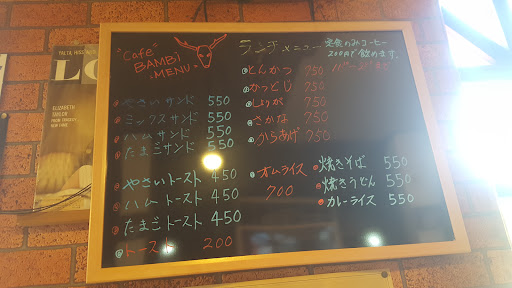 "Cafe"
BAMBi
MENU
やさいサンド 550
ミックスサンド 550
ハムサンド 550
たまごサンド 550
やさいトースト 450
ハムトースト 450
たまごトースト 450
トースト 200
ランチメニュー
定食のみコーヒー
200円で飲めます。
とんかつ 750
かつとじ 750
しょうが 750
さかな 750
からあげ 750
オムライス
700
焼きそば 550
焼きうどん 550
カレーライス 550
ELIZABETH
TAYLOR